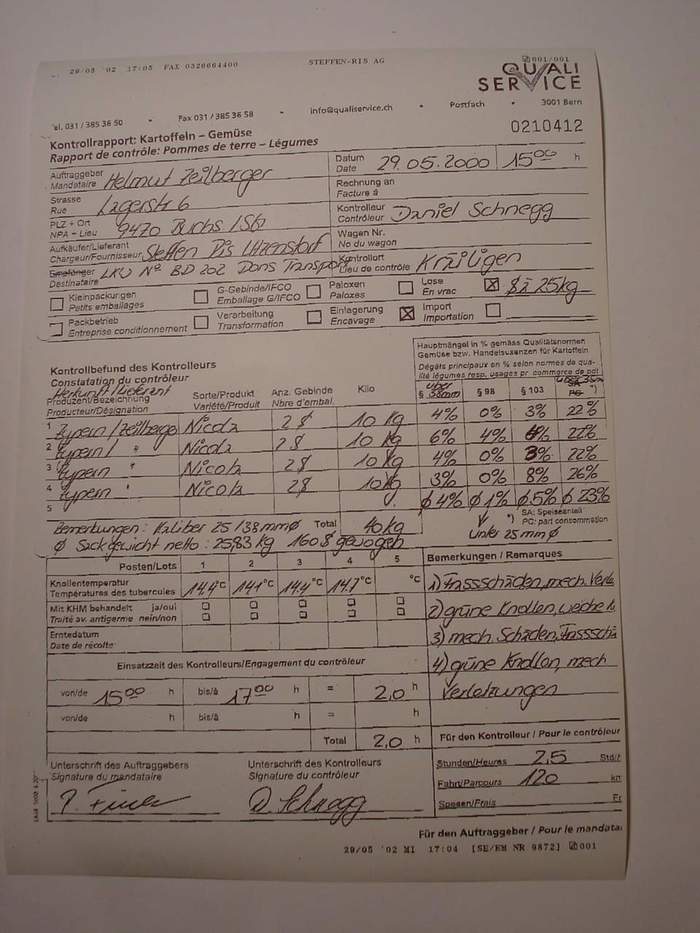 29/05 '02 17:05 FAX 0326664400 STEFFEN-RIS AG 001/001
QUALI
SERVICE
Tel. 031 / 385 36 50 • Fax 031 / 385 36 58 • info@qualiservice.ch • Postfach • 3001 Bern
Kontrollrapport: Kartoffeln – Gemüse 0210412
Rapport de contrôle: Pommes de terre – Légumes
Auftraggeber Helmut Zeilberger Datum 29.05.2000 15 00 h
Mandataire Date
Strasse Lagerstr 6 Rechnung an
Rue Facture à
PLZ + Ort 9470 Buchs /SG Kontrolleur Daniel Schnegg
NPA + Lieu Contrôleur
Aufkäufer/Lieferant Steffen Ris Utzenstorf Wagen Nr.
Chargeur/Fournisseur No du wagon
Empfänger LKW No BD 202 Dons Transport Kontrollort Kräiligen
Destinataire Lieu de contrôle
Kleinpackungen G-Gebinde/IFCO Paloxen Lose Sä 25kg
Petits emballages Emballage G/IFCO Paloxes En vrac
Packbetrieb Verarbeitung Einlagerung Import
Entreprise conditionnement Transformation Encavage Importation
Hauptmängel in % gemäss Qualitätsnormen
Gemüse bzw. Handelsusanzen für Kartoffeln
Kontrollbefund des Kontrolleurs Dégâts principaux en % selon normes de qua-
Constatation du contrôleur lité légumes resp. usages pr commerce de pdt
Herkunft/Lieferant über
Produzent/Bezeichnung Sorte/Produkt Anz. Gebinde Kilo § 38mm § 98 § 103 *)
Producteur/Désignation Variété/Produit Nbre d'embal.
1 Zypern/Zeilberger Nicola 2S 10 kg 4% 0% 3% 22%
2 Zypern/ " Nicola 2S 10 kg 6% 4% 22%
3 Zypern " Nicola 2S 10 kg 4% 0% 3% 22%
4 Zypern " Nicola 2S 10 kg 3% 0% 8% 26%
5 ø 4% ø 1% ø 5% ø 23%
Bemerkungen: Kaliber 25/38mmø Total 40kg *) SA: Speiseanteil
PC: part consommation
ø Sackgewicht netto: 25,83 kg 160S gewogen Unter 25mm ø
Posten/Lots 1 2 3 4 5 Bemerkungen / Remarques
Knollentemperatur 14.4°C 14.1°C 14.4°C 14.7°C °C 1) Frassschäden, mech. Verle
Températures des tubercules
Mit KHM behandelt ja/oui 2) grüne Knollen, weiche
Traité av. antigerme nein/non
Erntedatum 3) mech. Schäden, Frassschä
Date de récolte
Einsatzzeit des Kontrolleurs/Engagement du contrôleur 4) grüne Knollen, mech
von/de 15 00 h bis/à 17 00 h = 2,0 h Verletzungen
von/de h bis/à h = h
Total 2,0 h Für den Kontrolleur / Pour le contrôleur
Unterschrift des Auftraggebers Unterschrift des Kontrolleurs Stunden/Heures 2,5 Std/
Signature du mandataire Signature du contrôleur
Fahrt/Parcours 120 km
D. Schnegg Spesen/Frais Fr
Für den Auftraggeber / Pour le mandata
29/05 '02 MI 17:04 [SE/EM NR 9872] 001